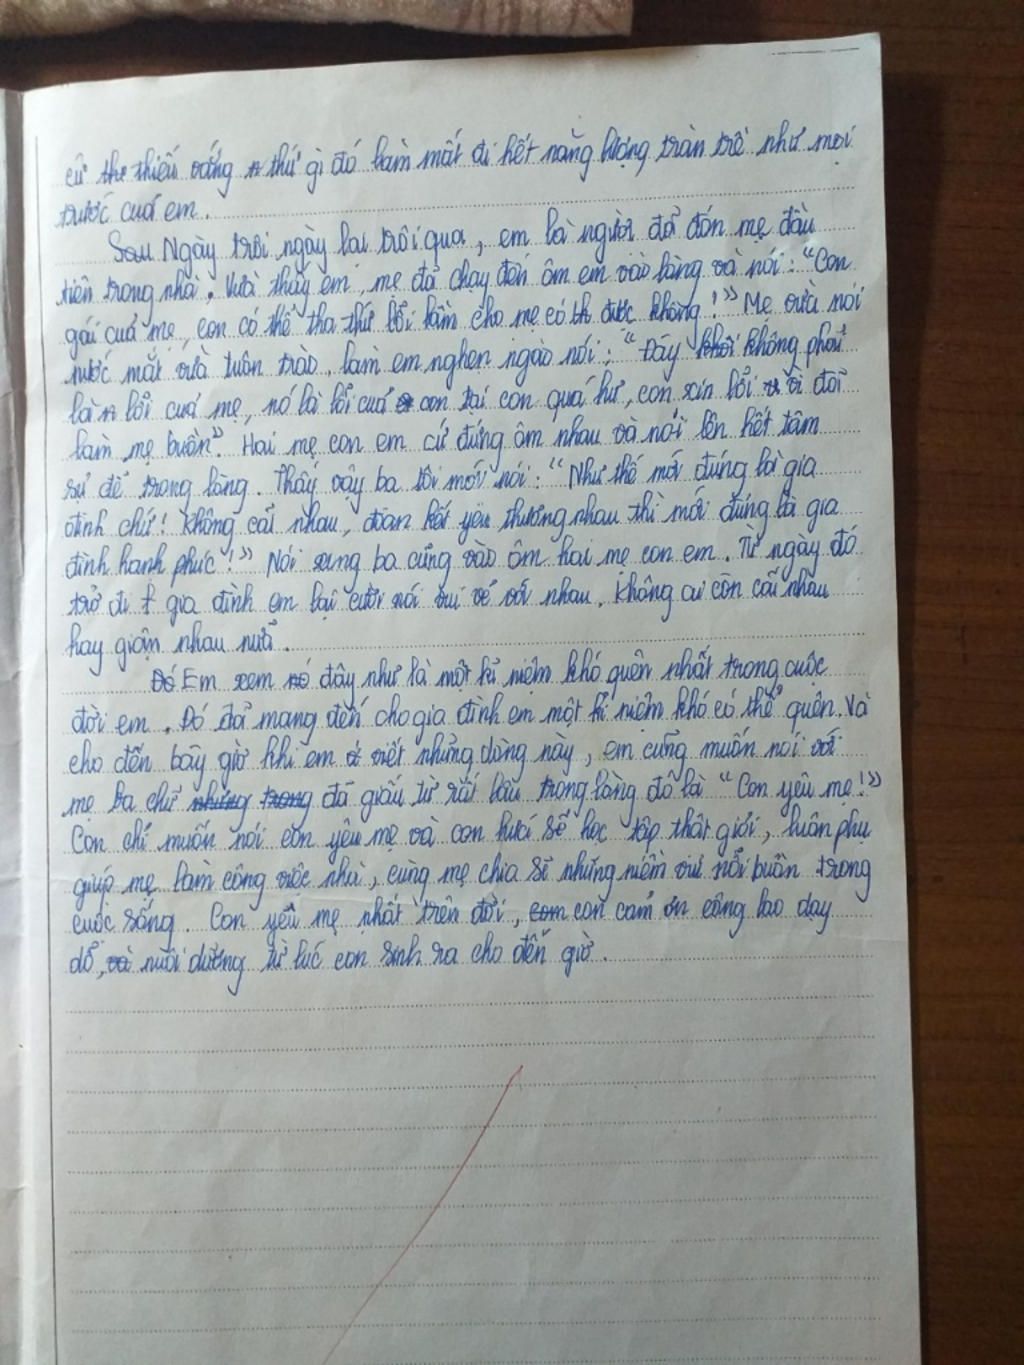 cứ thiếu vắng thứ gì đó làm mất đi hết năng lượng tràn trề như mọi
trước cuả em.
Sau Ngày trôi ngày lại trôi qua, em là người đã đón mẹ đầu
tiên trong nhà. Vừa thấy em, mẹ đã chạy đến ôm em vào lòng và nói: "Con
gái cuả mẹ, con có thể tha thứ lỗi lầm cho mẹ có th được không!" Mẹ vừa nói
nước mắt vừa tuôn trào, làm em nghẹn ngào nói: "Đây khôi không phải
là n lỗi cuả mẹ, nó là lỗi cuả con tại con quá hư, con xin lỗi vì đã
làm mẹ buồn". Hai mẹ con em cứ đứng ôm nhau và nói lên hết tâm
sự để trong lòng. Thấy vậy ba tôi mới nói: "Như thế mới đúng là gia
đình chứ! Không cãi nhau, đoàn kết yêu thương nhau thì mới đúng là gia
đình hạnh phúc!" Nói xong ba cũng vào ôm hai mẹ con em. Từ ngày đó
trở đi gia đình em lại cười nói vui vẻ với nhau. Không ai còn cãi nhau
hay giận nhau nữa.
Đó Em xem nó đây như là một kỉ niệm khó quên nhất trong cuộc
đời em. Đó đã mang đến cho gia đình em một kỉ niệm khó có thể quên. Và
cho đến bây giờ khi em viết những dòng này, em cũng muốn nói với
mẹ ba chữ những trong đã giấu từ rất lâu trong lòng đó là "Con yêu mẹ!"
Con chỉ muốn nói con yêu mẹ và con hứa sẽ học tập thật giỏi, luôn phụ
giúp mẹ làm công việc nhà, cùng mẹ chia sẻ những niềm vui nỗi buồn trong
cuộc sống. Con yêu mẹ nhất trên đời, com con cảm ơn công lao dạy
dỗ, và nuôi dưỡng từ lúc con sinh ra cho đến giờ.